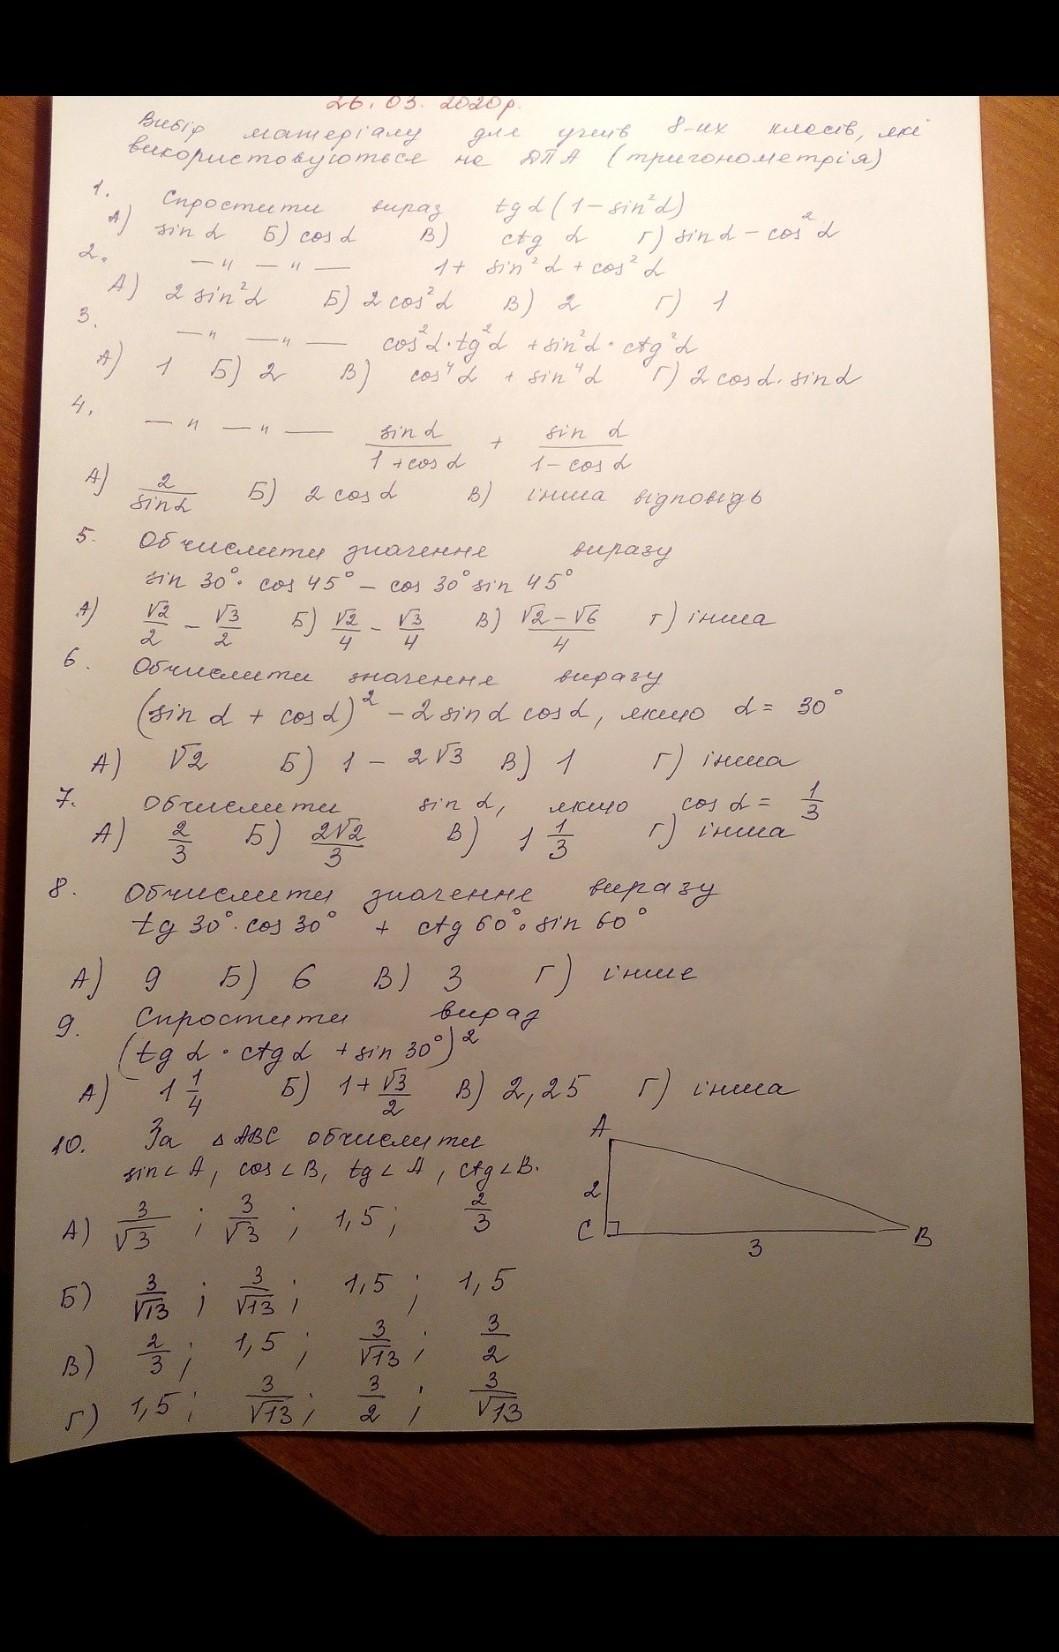 26.03.2020р.
Вибір матеріалу для учнів 8-их класів, які
використовуються на ДПА (тригонометрія)
1. Спростити вираз tgα(1-sin²α)
А) sinα Б) cosα В) ctg α Г) sinα - cos²α
2. —"— "— 1+ sin²α + cos²α
А) 2 sin²α Б) 2 cos²α В) 2 Г) 1
3. —" —" — cos²α·tg²α + sin²α · ctg²α
А) 1 Б) 2 В) cos⁴α + sin⁴α Г) 2 cosα·sinα
4. —" —" — sinα/(1+cosα) + sin α/(1-cosα)
А) 2/sinα Б) 2 cosα В) інша відповідь
5. Обчислити значення виразу
sin 30°· cos 45° - cos 30° sin 45°
А) √2/2 - √3/2 Б) √2/4 - √3/4 В) (√2-√6)/4 Г) інша
6. Обчислити значення виразу
(sin α + cosα)² - 2 sinα cosα, якщо α = 30°
А) √2 Б) 1 - 2√3 В) 1 Г) інша
7. Обчислити sin α, якщо cos α = 1/3
А) 2/3 Б) 2√2/3 В) 1 1/3 Г) інша
8. Обчислити значення виразу
tg 30°·cos 30° + ctg 60°·sin 60°
А) 9 Б) 6 В) 3 Г) інше
9. Спростити вираз
(tg α · ctg α + sin 30°)²
А) 1 1/4 Б) 1+ √3/2 В) 2,25 Г) інша
10. За △ABC обчислити
sin∠A, cos∠B, tg∠A, ctg∠B.
А) 3/√3 ; 3/√3 ; 1,5 ; 2/3
Б) 3/√13 ; 3/√13 ; 1,5 ; 1,5
В) 2/3 ; 1,5 ; 3/√13 ; 3/2
Г) 1,5 ; 3/√13 ; 3/2 ; 3/√13
A
2
C
3
B